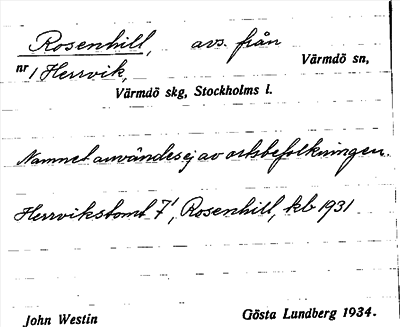 Rosenhill, avs. från Värmdö sn,
nr 1 Herrvik,
Värmdö skg, Stockholms l.
Namnet användes ej av ortsbefolkningen.
Herrvikstomt 7¹, Rosenhill, kb 1931
John Westin Gösta Lundberg 1934.